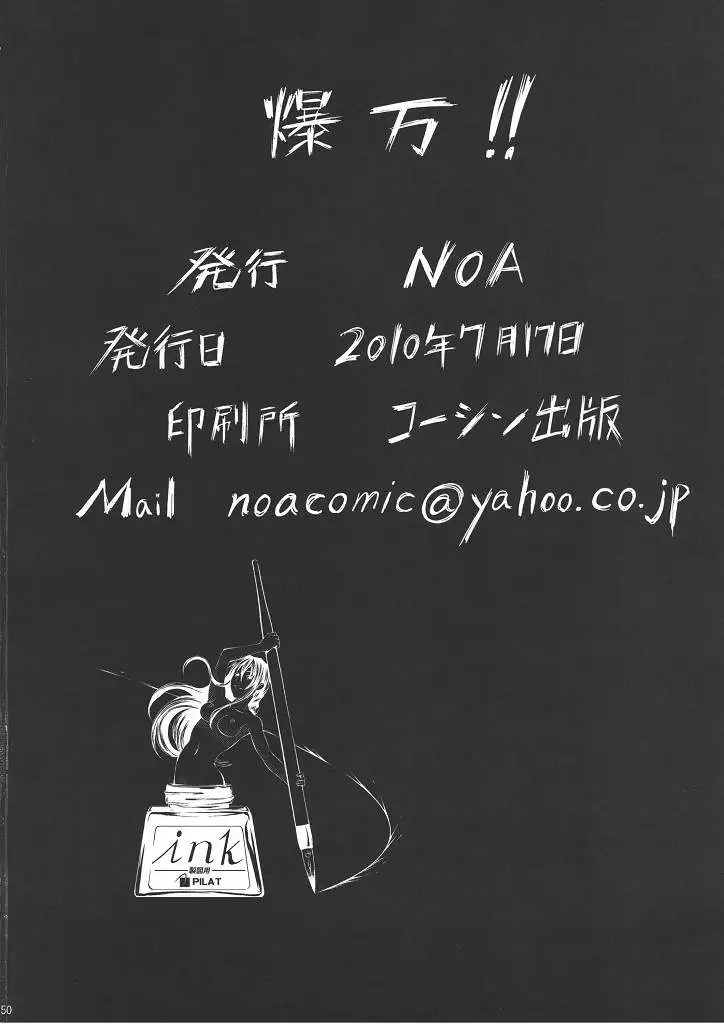 爆万!!
発行 NOA
発行日 2010年7月17日
印刷所 コーシン出版
Mail noacomic@yahoo.co.jp
ink
製図用
PILAT
50